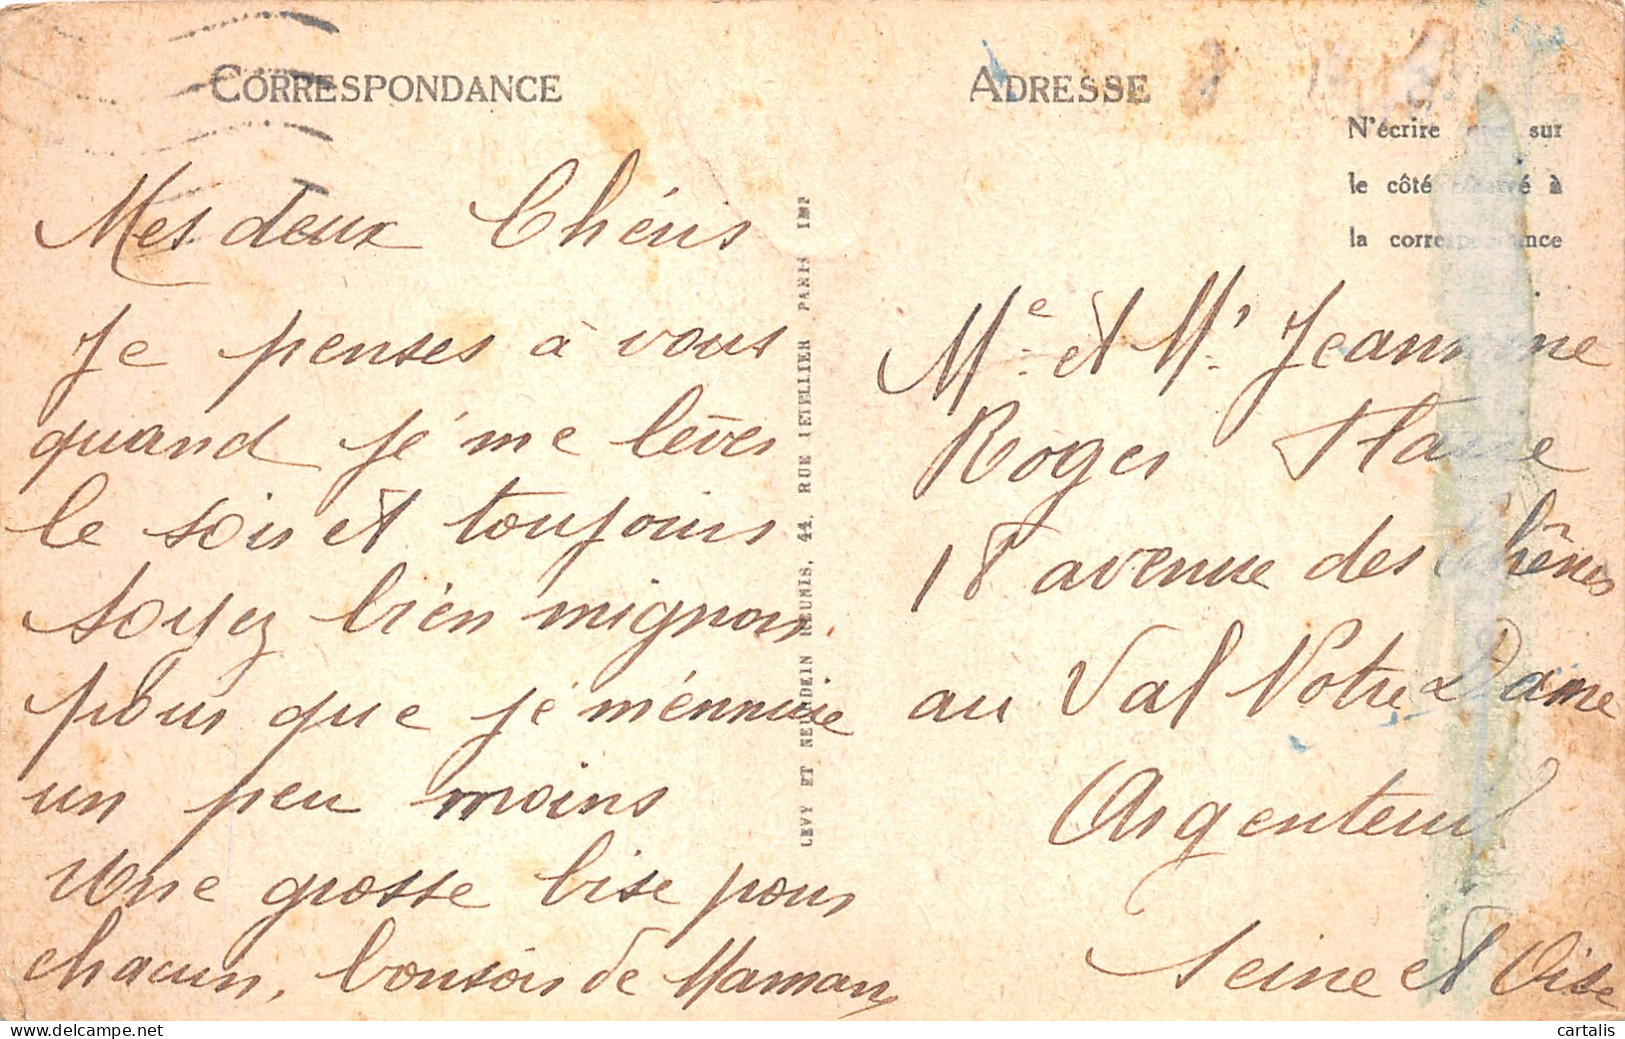 CORRESPONDANCE
Mes deux Chéris
Je penses à vous
quand je me lèves
le soir et toujours
soyez bien mignons
pour que je m'ennuie
un peu moins
Une grosse bise pour
chacun, bonsoir de Maman
LEVY ET NEURDEIN REUNIS, 44, RUE LETELLIER PARIS IMP
ADRESSE
N'écrire que sur
le côté réservé à
la correspondance
Me et Mr Jeannine
Roger
18 avenue des Chênes
au Val Notre Dame
Argenteuil
Seine et Oise
cartalis